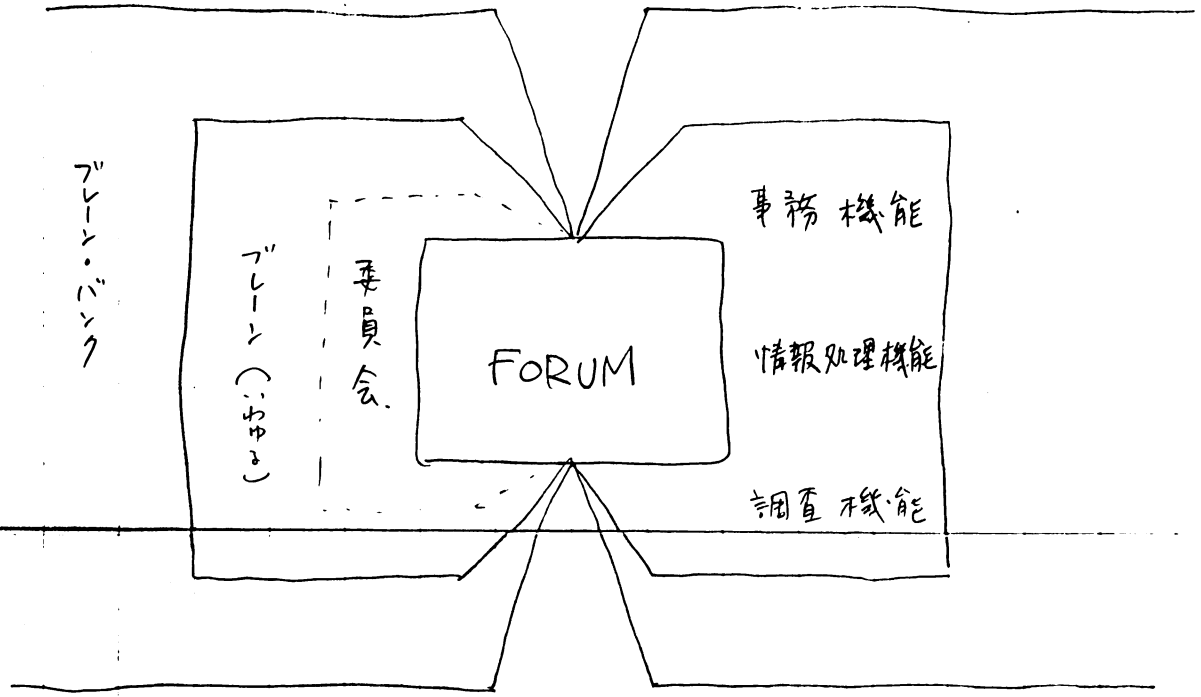 ブレーン・バンク
ブレーン（いわゆる）
委員会.
FORUM
事務機能
情報処理機能
調査機能